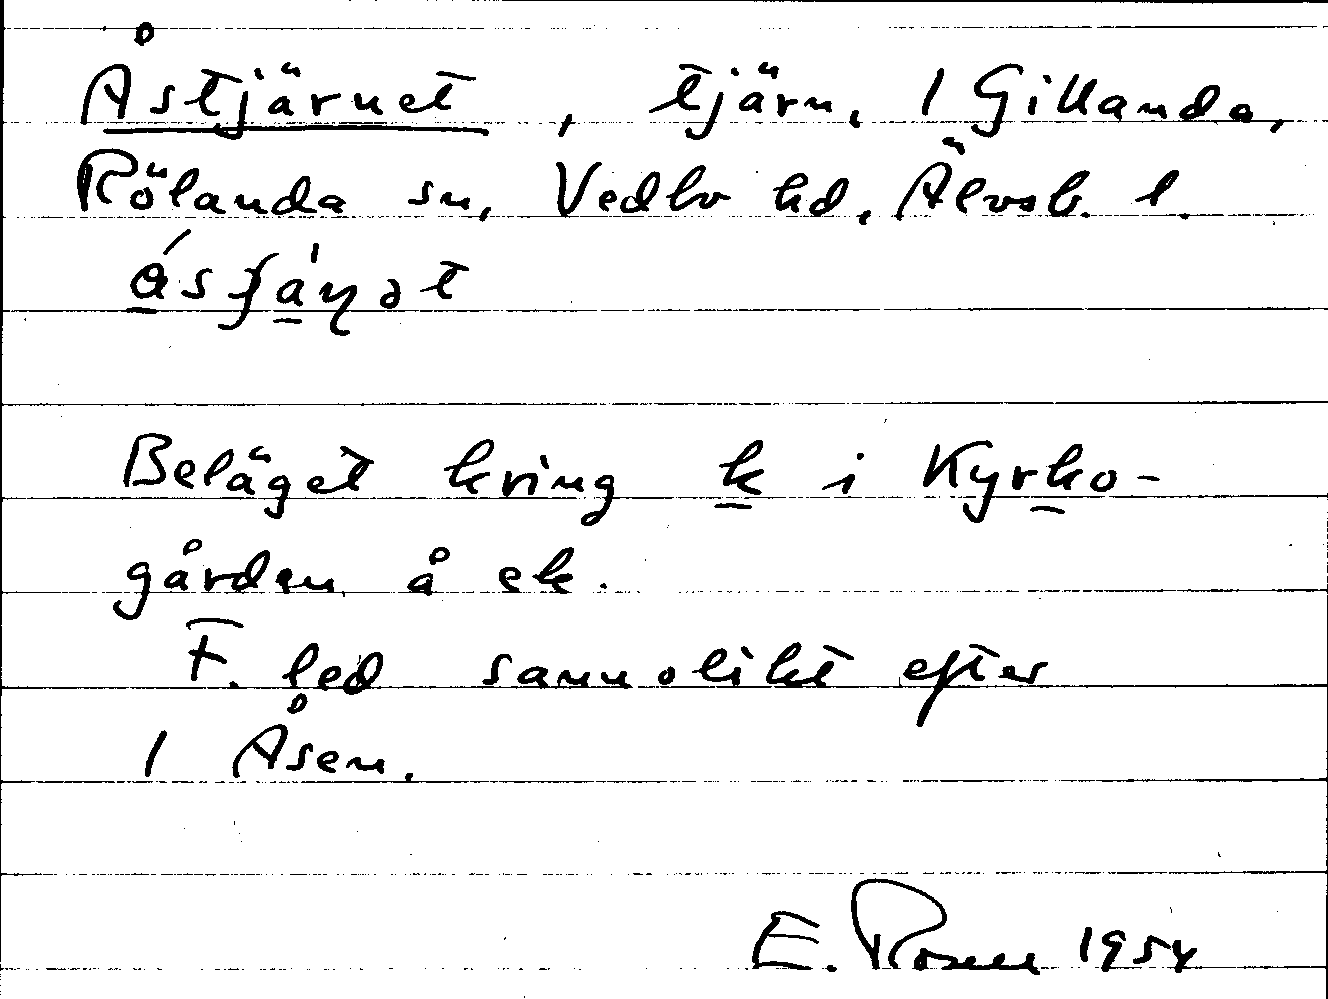 Åstjärnet, tjärn, 1 Gillanda,
Rölanda sn, Vedbo hd, Älvsb. l.
Beläget kring k i Kyrko-
gården å ek.
F. led sannolikt efter
1 Åsen.
E. Rosen 1954